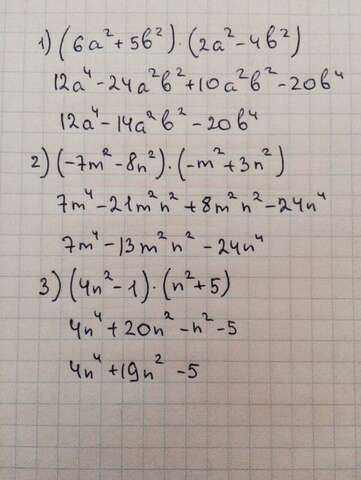 1) (6a² + 5b²) · (2a² - 4b²)
12a⁴ - 24a²b² + 10a²b² - 20b⁴
12a⁴ - 14a²b² - 20b⁴
2) (-7m² - 8n²) · (-m² + 3n²)
7m⁴ - 21m²n² + 8m²n² - 24n⁴
7m⁴ - 13m²n² - 24n⁴
3) (4n² - 1) · (n² + 5)
4n⁴ + 20n² - n² - 5
4n⁴ + 19n² - 5